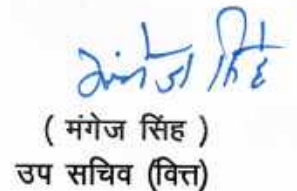 मंगेज सिंह
( मंगेज सिंह )
उप सचिव (वित्त)